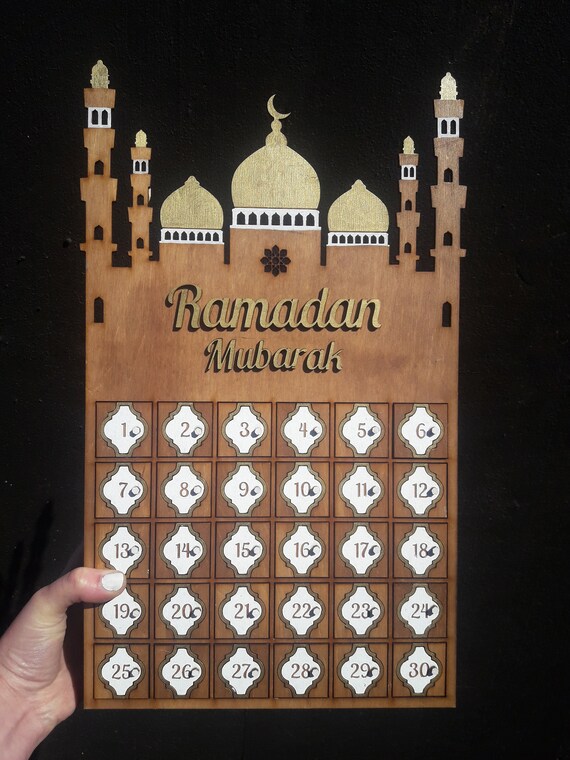 Ramadan
Mubarak
1 2 3 4 5 6
7 8 9 10 11 12
13 14 15 16 17 18
19 20 21 22 23 24
25 26 27 28 29 30